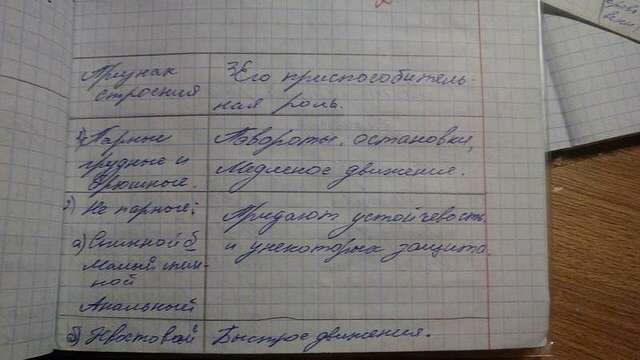 Признак строения
Его приспособитель-
ная роль.
1) Парные
грудные и
брюшные.
Повороты, остановки,
Медленое движение.
2) Не парные:
а) Спинной б
Малый спин-
ной
Анальный
Придают устойчевость
и унекоторых защита.
б) Хвостовой
Быстрое движения.